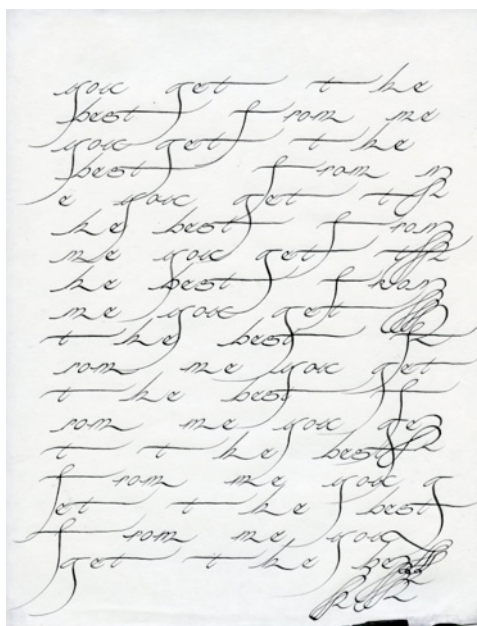 you get t he
best f rom me
you get t he
best f rom m
e you get t
he best f rom
me you get t
he best f rom
me you get
t he best f
rom me you get
t he best f
rom me you ge
t t he best
f rom me you g
et t he best
f rom me you
get t he best